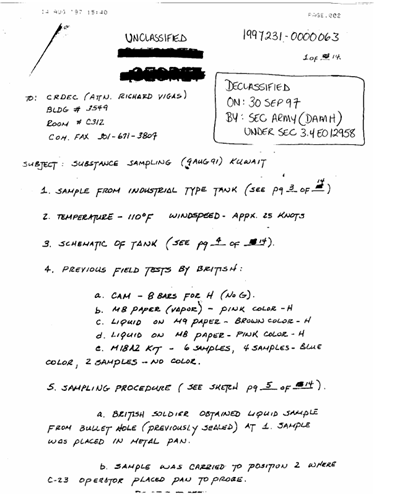 12 AUG '97 15:40 PAGE.002
UNCLASSIFIED
1997231-0000063
1 of 14
SECRET
DECLASSIFIED
ON: 30 SEP 97
BY: SEC ARMY (DAMH)
UNDER SEC 3.4 EO 12958
TO: CRDEC (ATTN. RICHARD VIGAS)
BLDG # 3549
ROOM # C312
COM. FAX 301-671-3807
SUBJECT: SUBSTANCE SAMPLING (9 AUG 91) KUWAIT
1. SAMPLE FROM INDUSTRIAL TYPE TANK (SEE pg 3 OF 14)
2. TEMPERATURE - 110°F WINDSPEED - APPX. 25 KNOTS
3. SCHEMATIC OF TANK (SEE pg 4 OF 14).
4. PREVIOUS FIELD TESTS BY BRITISH:
a. CAM - 8 BARS FOR H (NO G).
b. M8 PAPER (VAPOR) - PINK COLOR - H
c. LIQUID ON M9 PAPER - BROWN COLOR - H
d. LIQUID ON M8 PAPER - PINK COLOR - H
e. M18A2 KIT - 6 SAMPLES, 4 SAMPLES - BLUE
COLOR, 2 SAMPLES - NO COLOR.
5. SAMPLING PROCEDURE (SEE SKETCH pg 5 OF 14).
a. BRITISH SOLDIER OBTAINED LIQUID SAMPLE
FROM BULLET HOLE (PREVIOUSLY SEALED) AT 1. SAMPLE
WAS PLACED IN METAL PAN.
b. SAMPLE WAS CARRIED TO POSITION 2 WHERE
C-23 OPERATOR PLACED PAN TO PROBE.